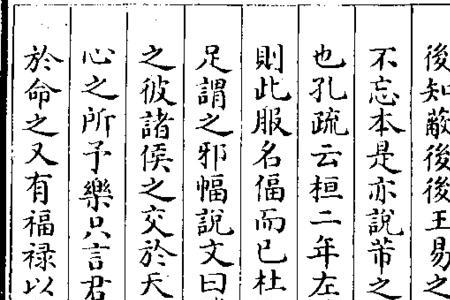 後知蔽後後王易之
不忘本是亦說芾之
也孔疏云桓二年左
則此服名偪而已杜
足謂之邪幅說文曰
之彼諸侯之交於天
心之所予樂只言君
於命之又有福祿以